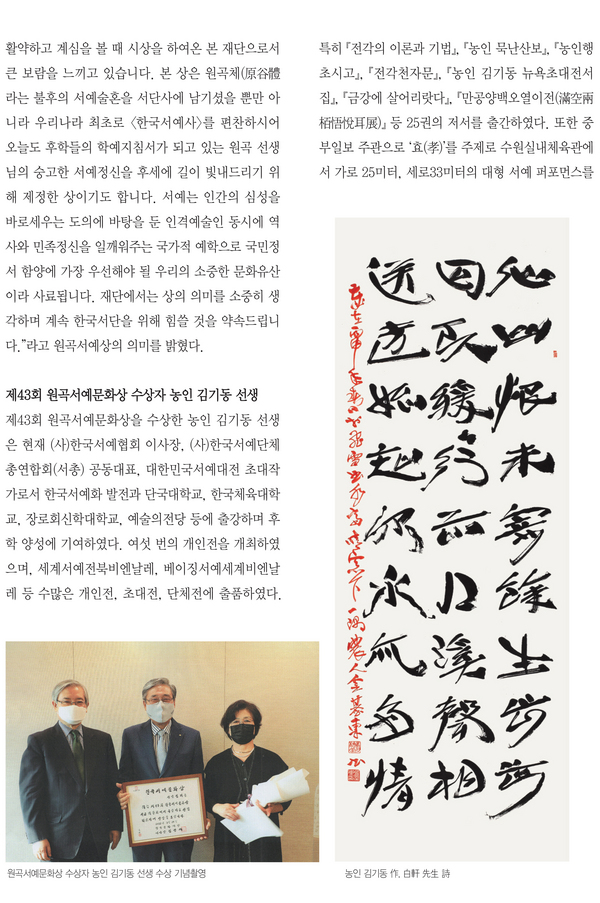 활약하고 계심을 볼 때 시상을 하여온 본 재단으로서
큰 보람을 느끼고 있습니다. 본 상은 원곡체(原谷體
라는 불후의 서예술혼을 서단사에 남기셨을 뿐만 아
니라 우리나라 최초로 〈한국서예사〉를 편찬하시어
오늘도 후학들의 학예지침서가 되고 있는 원곡 선생
님의 숭고한 서예정신을 후세에 길이 빛내드리기 위
해 제정한 상이기도 합니다. 서예는 인간의 심성을
바로세우는 도의에 바탕을 둔 인격예술인 동시에 역
사와 민족정신을 일깨워주는 국가적 예학으로 국민정
서 함양에 가장 우선해야 될 우리의 소중한 문화유산
이라 사료됩니다. 재단에서는 상의 의미를 소중히 생
각하며 계속 한국서단을 위해 힘쓸 것을 약속드립니
다.”라고 원곡서예상의 의미를 밝혔다.
제43회 원곡서예문화상 수상자 농인 김기동 선생
제43회 원곡서예문화상을 수상한 농인 김기동 선생
은 현재 (사)한국서예협회 이사장, (사)한국서예단체
총연합회(서총) 공동대표, 대한민국서예대전 초대작
가로서 한국서예화 발전과 단국대학교, 한국체육대학
교, 장로회신학대학교, 예술의전당 등에 출강하며 후
학 양성에 기여하였다. 여섯 번의 개인전을 개최하였
으며, 세계서예전북비엔날레, 베이징서예세계비엔날
레 등 수많은 개인전, 초대전, 단체전에 출품하였다.
특히 『전각의 이론과 기법』, 『농인 묵난산보』, 『농인행
초시고』, 『전각천자문』, 『농인 김기동 뉴욕초대전서
집』, 『금강에 살어리랏다』, 『만공양백오열이전(滿空兩
栢悟悅耳展)』 등 25권의 저서를 출간하였다. 또한 중
부일보 주관으로 ‘효(孝)’를 주제로 수원실내체육관에
서 가로 25미터, 세로33미터의 대형 서예 퍼포먼스를
원곡서예문화상 수상자 농인 김기동 선생 수상 기념촬영
농인 김기동 作, 白軒 先生 詩